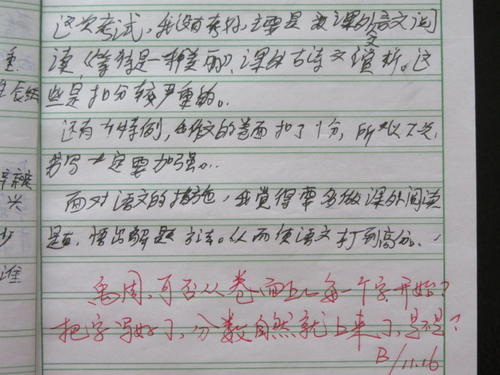 这次考试，我没有考好，主要是 课外 文阅
读，《等待是一种美丽》，课外古诗文赏析。这
些是扣分较严重的。
还有 特例，作文的卷面扣了1分，所以下次
书写一定要加强。
面对语文的措施，我觉得要多做课外阅读
题，悟出解题方法。从而使语文打到高分。
禹周，可否从卷面上每一个字开始？
把字写好了，分数自然就上来了，是不是？
B/11.16
重
兴
少
谁